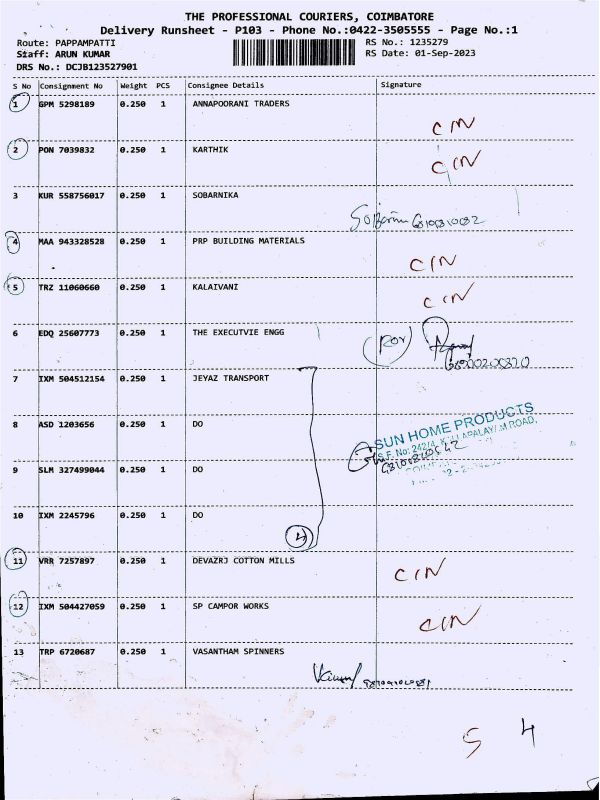 THE PROFESSIONAL COURIERS, COIMBATORE
Delivery Runsheet - P103 - Phone No.:0422-3505555 - Page No.:1
Route: PAPPAMPATTI RS No.: 1235279
Staff: ARUN KUMAR RS Date: 01-Sep-2023
DRS No.: DCJB123527901
S No Consignment No Weight PCS Consignee Details Signature
1 GPM 5298189 0.250 1 ANNAPOORANI TRADERS
CIN
2 PON 7039832 0.250 1 KARTHIK
CIN
3 KUR 558756017 0.250 1 SOBARNIKA
4 MAA 943328528 0.250 1 PRP BUILDING MATERIALS
CIN
5 TRZ 11060660 0.250 1 KALAIVANI
CIN
6 EDQ 25607773 0.250 1 THE EXECUTVIE ENGG
7 IXM 504512154 0.250 1 JEYAZ TRANSPORT
8 ASD 1203656 0.250 1 DO
SUN HOME PRODUCTS
S.F. No: 242/4, ROAD,
9 SLM 327499044 0.250 1 DO
10 IXM 2245796 0.250 1 DO
4
11 VRR 7257897 0.250 1 DEVAZRJ COTTON MILLS
CIN
12 IXM 504427059 0.250 1 SP CAMPOR WORKS
CIN
13 TRP 6720687 0.250 1 VASANTHAM SPINNERS
5 4